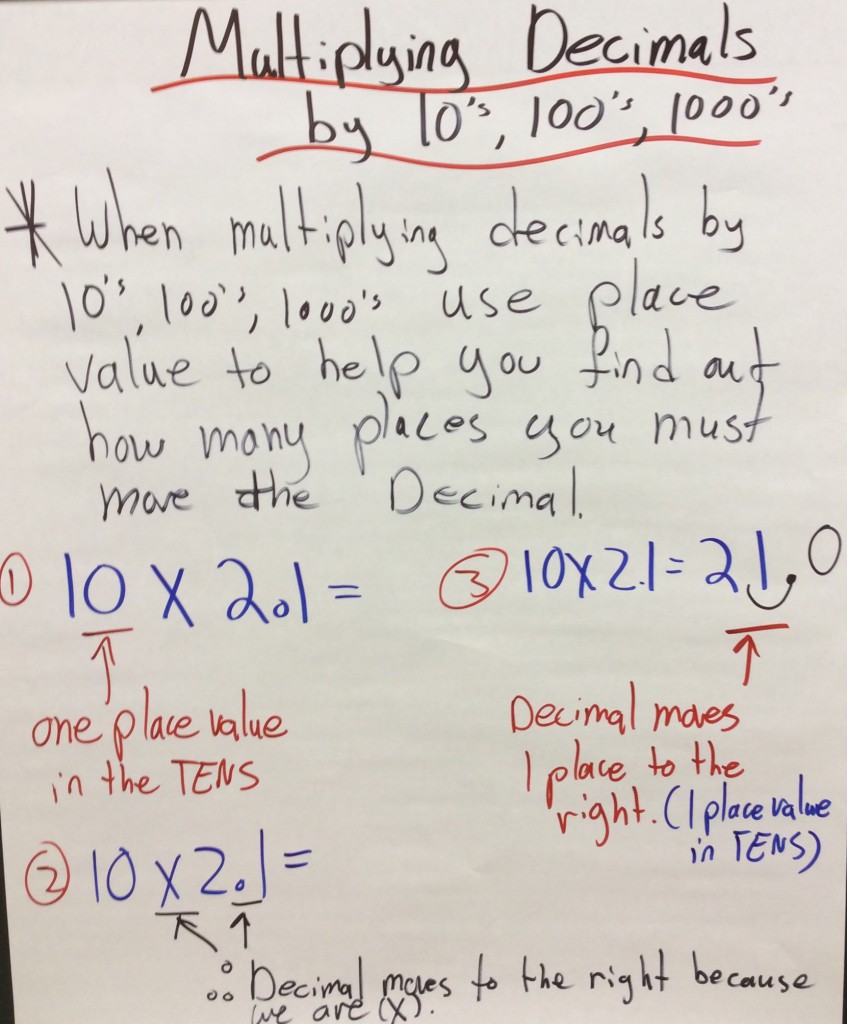 Multiplying Decimals
by 10's, 100's, 1000's
* When multiplying decimals by
10's, 100's, 1000's use place
value to help you find out
how many places you must
move the Decimal.
① 10 x 2.1 =
one place value
in the TENS
② 10 x 2.1 =
∴ Decimal moves to the right because
we are (x).
③ 10x2.1= 21.0
Decimal moves
1 place to the
right. (1 place value
in TENS)